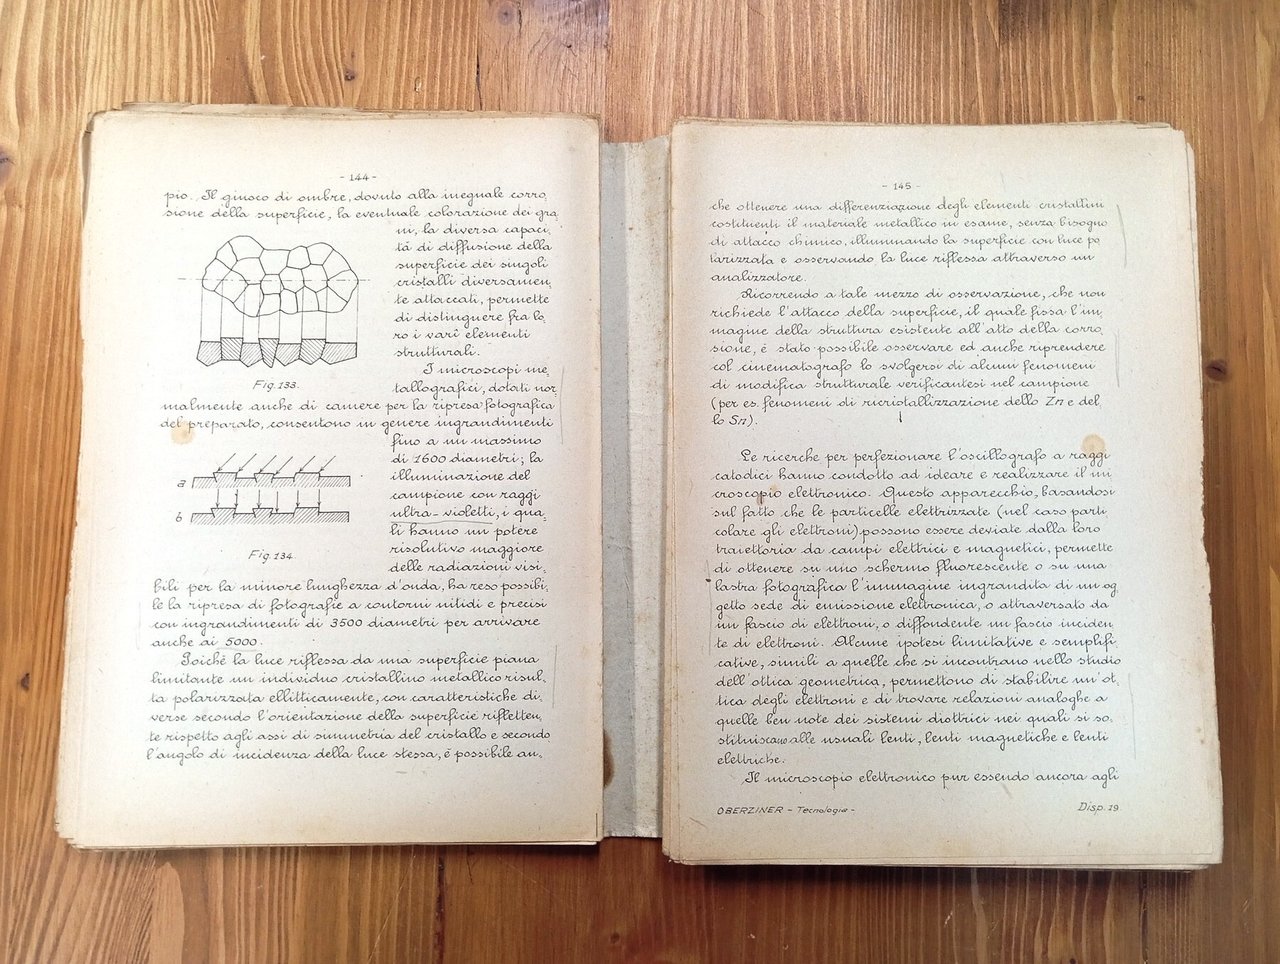 - 144 -
pio. Il giuoco di ombre, dovuto alla ineguale corro
sione della superficie, la eventuale colorazione dei gra
ni, la diversa capaci
tà di diffusione della
superficie dei singoli
cristalli diversamen,
te attaccati, permette
di distinguere fra lo,
ro i varî elementi
strutturali.
Fig. 133.
I microscopi me,
tallografici, dotati nor,
malmente anche di camere per la ripresa fotografica
del preparato, consentono in genere ingrandimenti
fino a un massimo
di 1600 diametri; la
illuminazione del
campione con raggi
ultra-violetti, i qua,
li hanno un potere
risolutivo maggiore
delle radiazioni visi,
a
b
Fig. 134.
bili per la minore lunghezza d'onda, ha reso possibi,
le la ripresa di fotografie a contorni nitidi e precisi
con ingrandimenti di 3500 diametri per arrivare
anche ai 5000.
Poichè la luce riflessa da una superficie piana
limitante un individuo cristallino metallico risul,
ta polarizzata ellitticamente, con caratteristiche di,
verse secondo l'orientazione della superficie rifletten,
te rispetto agli assi di simmetria del cristallo e secondo
l'angolo di incidenza della luce stessa, è possibile an,
- 145 -
che ottenere una differenziazione degli elementi cristallini
costituenti il materiale metallico in esame, senza bisogno
di attacco chimico, illuminando la superficie con luce po
larizzata e osservando la luce riflessa attraverso un
analizzatore.
Ricorrendo a tale mezzo di osservazione, che non
richiede l'attacco della superficie, il quale fissa l'im,
magine della struttura esistente all'atto della corro,
sione, è stato possibile osservare ed anche riprendere
col cinematografo lo svolgersi di alcuni fenomeni
di modifica strutturale verificantesi nel campione
(per es. fenomeni di ricristallizzazione dello Zn e del,
lo Sn).
Le ricerche per perfezionare l'oscillografo a raggi
catodici hanno condotto ad ideare e realizzare il mi
croscopio elettronico. Questo apparecchio, basandosi
sul fatto che le particelle elettrizzate (nel caso parti,
colare gli elettroni) possono essere deviate dalla loro
traiettoria da campi elettrici e magnetici, permette
di ottenere su uno schermo fluorescente o su una
lastra fotografica l'immagine ingrandita di un og,
getto sede di emissione elettronica, o attraversato da
un fascio di elettroni, o diffondente un fascio inciden,
te di elettroni. Alcune ipotesi limitative e semplifi,
cative, simili a quelle che si incontrano nello studio
dell'ottica geometrica, permettono di stabilire un'ot,
tica degli elettroni e di trovare relazioni analoghe a
quelle ben note dei sistemi diottrici nei quali si so,
stituiscano alle usuali lenti, lenti magnetiche e lenti
elettriche.
Il microscopio elettronico pur essendo ancora agli
OBERZINER - Tecnologia -
Disp. 19.